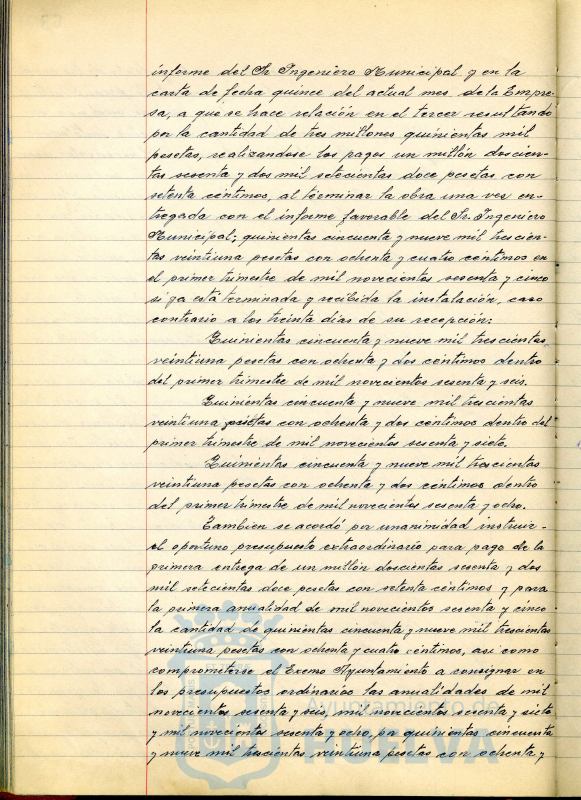 informe del Sr Ingeniero Municipal y en la
carta de fecha quince del actual mes de la Empre-
sa, a que se hace relación en el tercer resultando
por la cantidad de tres millones quinientas mil
pesetas, realizandose los pagos un millón doscien-
tas sesenta y dos mil setecientas doce pesetas con
setenta céntimos, al términar la obra una ves en-
tregada con el informe favorable del Sr. Ingeniero
Municipal; quinientas cincuenta y nueve mil trescien-
tas veintiuna pesetas con ochenta y cuatro céntimos en
el primer trimestre de mil novecientos sesenta y cinco
si ya está terminada y recibida la instalación, caso
contrario a los treinta días de su recepción:
Quinientas cincuenta y nueve mil trescientas
veintiuna pesetas con ochenta y dos céntimos dentro
del primer trimestre de mil novecientos sesenta y seis.
Quinientas cincuenta y nueve mil trescientas
veintiuna pesetas con ochenta y dos céntimos dentro del
primer trimestre de mil novecientos sesenta y siete.
Quinientas cincuenta y nueve mil trescientas
veintiuna pesetas con ochenta y dos céntimos dentro
del primer trimestre de mil novecientos sesenta y ocho.
Tambien se acordó por unanimidad instruir-
el oportuno presupuesto extraordinario para pago de la
primera entrega de un millón doscientas sesenta y dos
mil setecientas doce pesetas con setenta céntimos y para
la primera anualidad de mil novecientos sesenta y cinco
la cantidad de quinientas cincuenta y nueve mil trescientas
veintiuna pesetas con ochenta y cuatro céntimos, asi como
comprometerse el Excmo Ayuntamiento a consignar en
los presupuestos ordinarios las anualidades de mil
novecientos sesenta y seis, mil novecientos sesenta y siete
y mil novecientos sesenta y ocho, por quinientas cincuenta
y nueve mil trescientas veintiuna pesetas con ochenta y
Ayuntamiento de